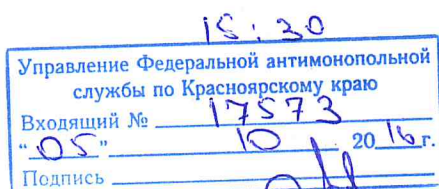 15:30
Управление Федеральной антимонопольной
службы по Красноярскому краю
Входящий № 17573
"05" 10 2016 г.
Подпись